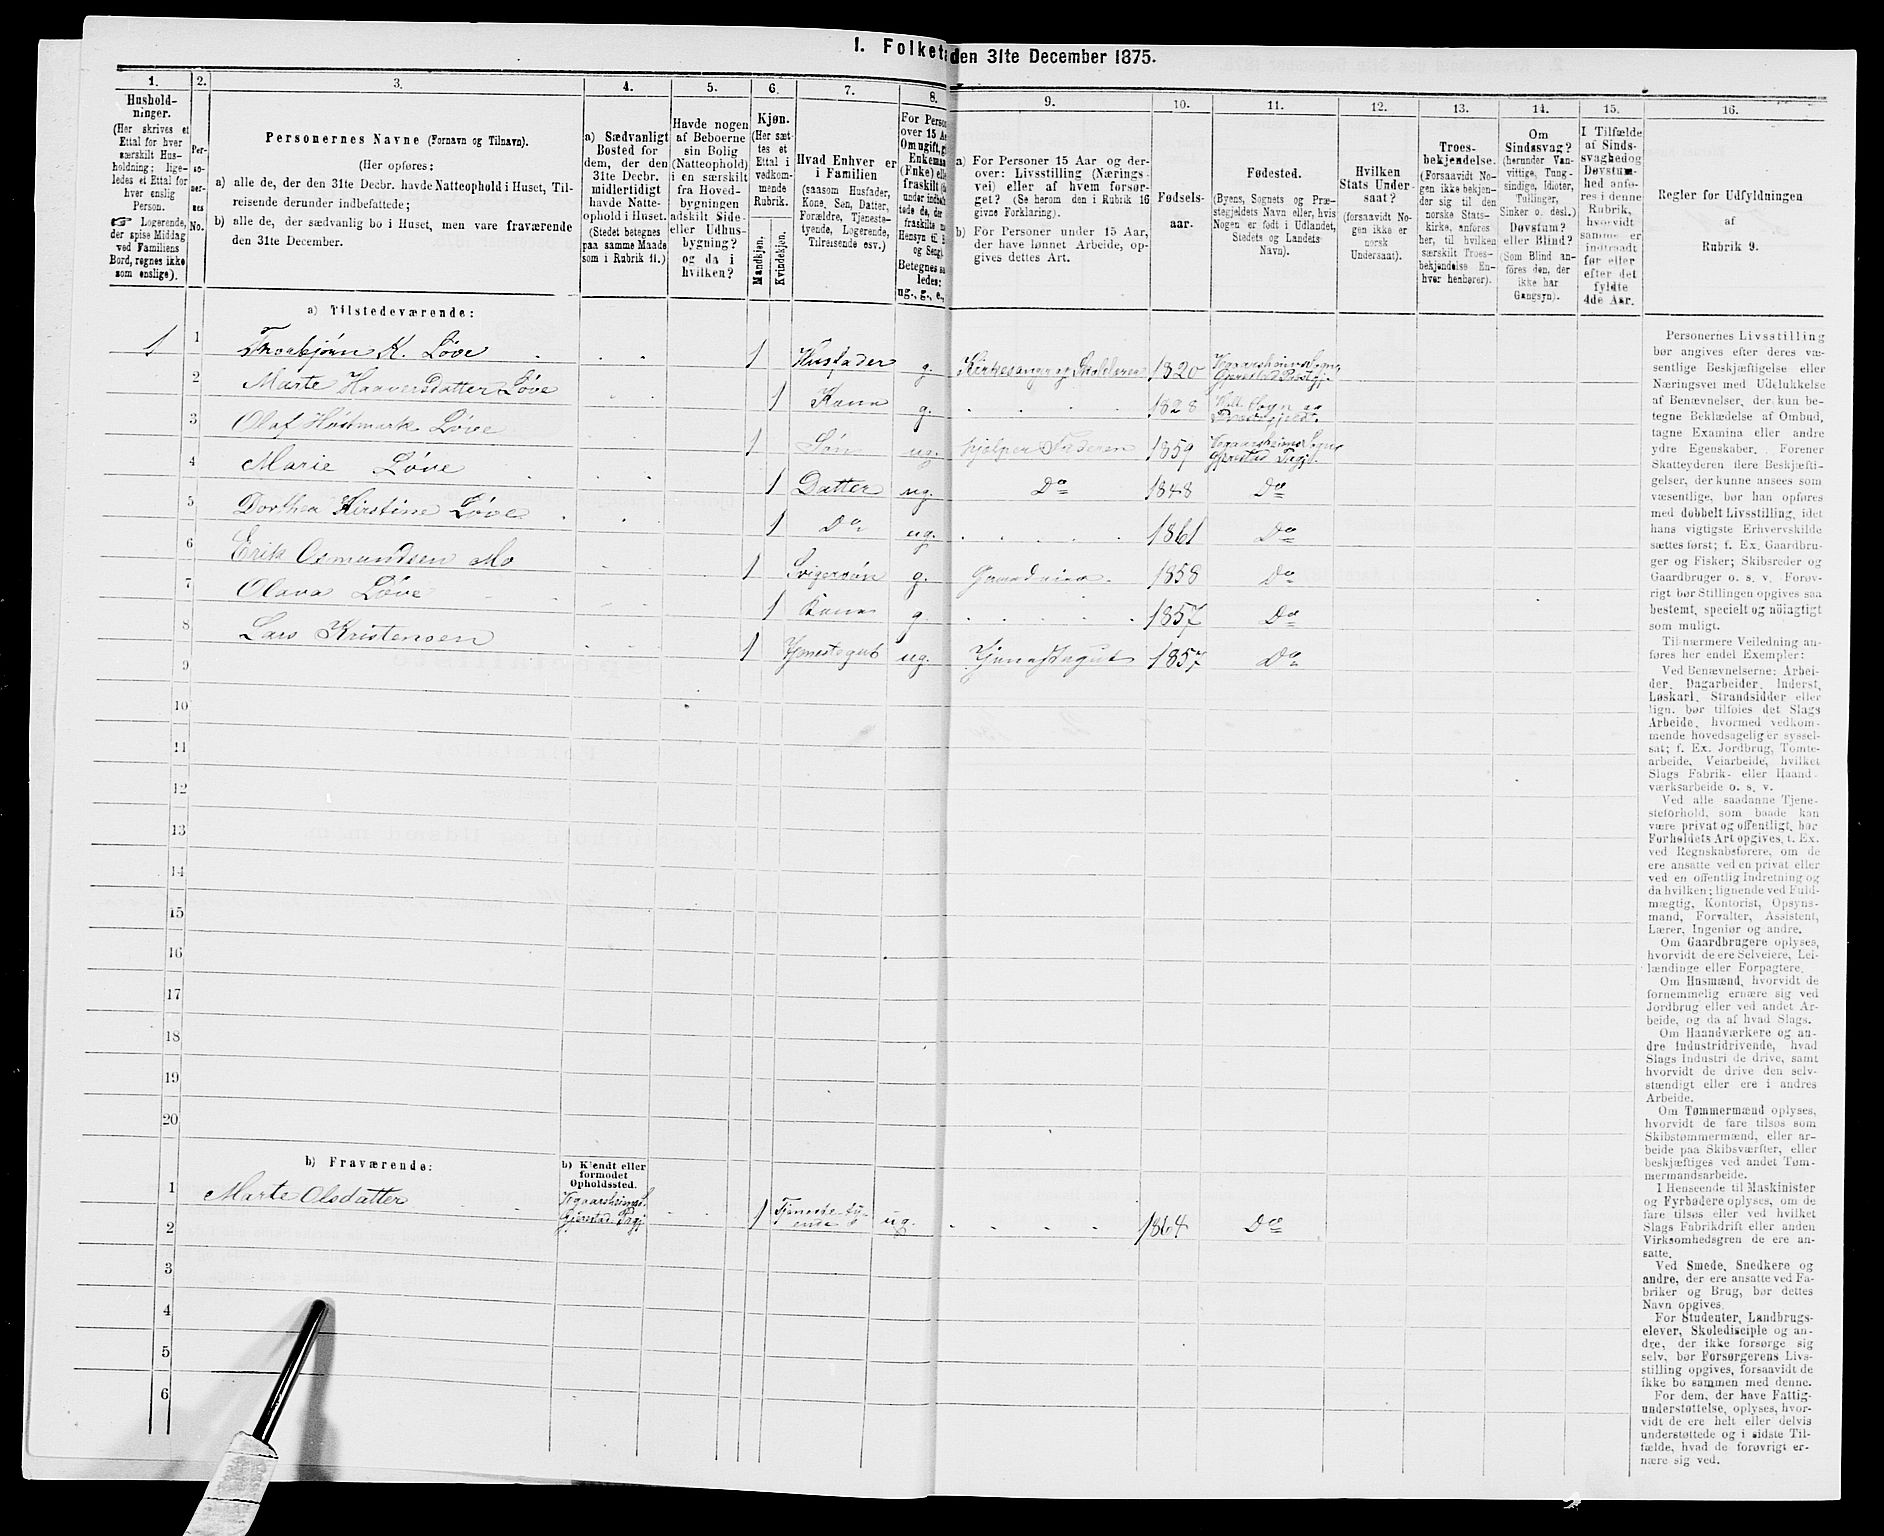 1. Folket
den 31te December 1875.
1.
Hushold-
ninger.
(Her skrives et
Ettal for hver
særskilt Hus-
holdning; lige-
ledes et Ettal for
hver enslig
Person.
☞ Logerende,
der spise Middag
ved Familiens
Bord, regnes ikke
som enslige).
2.
Per-
so-
ner-
nes
No.
3.
Personernes Navne (Fornavn og Tilnavn).
(Her opføres:
a) alle de, der den 31te Decbr. havde Natteophold i Huset, Til-
reisende derunder indbefattede;
b) alle de, der sædvanlig bo i Huset, men vare fraværende
den 31te December.
4.
a) Sædvanligt
Bosted for
dem, der den
31te Decbr.
midlertidigt
havde Natte-
ophold i Huset.
(Stedet betegnes
paa samme Maade
som i Rubrik 11.)
5.
Havde nogen
af Beboerne
sin Bolig
(Natteophold)
i en særskilt
fra Hoved-
bygningen
adskilt Side-
eller Udhus-
bygning?
og da i
hvilken?
6.
Kjøn.
(Her sæt-
tes et
Ettal i
vedkom-
mende
Rubrik.
Mandkjøn.
Kvindekjøn.
7.
Hvad Enhver er
i Familien
(saasom Husfader,
Kone, Søn, Datter,
Forældre, Tjeneste-
tyende, Logerende,
Tilreisende osv.)
8.
For Person
over 15 Aa
Om ugift, g
Enkema
(Enke) elle
fraskilt (h
under indbefat-
tede de, der
fraskilte m
Hensyn til B
og Seng).
Betegnes saa
ledes:
ug., g., e.,
9.
a) For Personer 15 Aar og der-
over: Livsstilling (Nærings-
vei) eller af hvem forsør-
get? (Se herom den i Rubrik 16
givne Forklaring).
b) For Personer under 15 Aar,
der have lønnet Arbeide, op-
gives dettes Art.
10.
Fødsels-
aar.
11.
Fødested.
(Byens, Sognets og Præ-
stegjeldets Navn eller, hvis
Nogen er født i Udlandet,
Stedets og Landets
Navn).
12.
Hvilken
Stats Under-
saat?
(forsaavidt No-
gen ikke er
norsk
Undersaat).
13.
Troes-
bekjendelse.
(Forsaavidt No-
gen ikke bekjen-
der sig til den
norske Stats-
kirke, anføres
her, til hvilken
særskilt Troes-
bekjendelse En-
hver henhører).
14.
Om
Sindssvag?
(herunder Van-
vittige, Tung-
sindige, Idioter,
Tullinger,
Sinker o. desl.)
Døvstum?
eller Blind?
(Som Blind an-
føres den, der
ikke har
Gangsyn).
15.
I Tilfælde
af Sinds-
svaghed og
Døvstum-
hed anfø-
res i denne
Rubrik,
hvorvidt
samme er
indtraadt
før eller
efter det
fyldte
4de Aar.
16.
Regler for Udfyldningen
af
Rubrik 9.
a) Tilstedeværende:
1 1 Thorbjørn K. Løve 1 Husfader g. Kirkesanger og Skolelærer 1820 Vegaarsheims Sogn, Gjerestad Præstgj.
2 Marte Haaversdatter Løve 1 Kone g. 1828
3 Olaf Hustmark Løve 1 Søn ug. hjelper Faderen 1859 Vegaarsheims Sogn Gjerestad Prgjl.
4 Marie Løve 1 Datter ug. Do 1848 Do
5 Dorthea Kirstine Løve 1 Do ug. 1861 Do
6 Erik Osmundsen Mo 1 Svigersøn g. 1858 Do
7 Olava Løve 1 Kone g. 1857 Do
8 Lars Kristensen 1 Tjenestegut ug. Tjenestegut 1857 Do
9
10
11
12
13
14
15
16
17
18
19
20
b) Fraværende:
b) Kjendt eller
formodet
Opholdssted.
1 Marte Olsdatter Vegaarsheims S. Gjerestad Prgj. 1 Tjeneste ty- ende ug. 1864 Do
2
3
4
5
6
Personernes Livsstilling
bør angives efter deres væ-
sentlige Beskjæftigelse eller
Næringsvei med Udelukkelse
af Benævnelser, der kun be-
tegne Beklædelse af Ombud,
tagne Examina eller andre
ydre Egenskaber. Forener
Skatteyderen flere Beskjæfti-
gelser, der kunne ansees som
væsentlige, bør han opføres
med dobbelt Livsstilling, idet
hans vigtigste Erhvervskilde
sættes først; f. Ex. Gaardbru-
ger og Fisker; Skibsreder og
Gaardbruger o. s. v. Forøv-
rigt bør Stillingen opgives saa
bestemt, specielt og nøiagtigt
som muligt.
Til nærmere Veiledning an-
føres her endel Exempler:
Ved Benævnelserne: Arbei-
der, Dagarbeider, Inderst,
Løskarl, Strandsidder eller
lign. bør tilføies det Slags
Arbeide, hvormed vedkom-
mende hovedsagelig er syssel-
sat; f. Ex. Jordbrug, Tomte-
arbeide, Veiarbeide, hvilket
Slags Fabrik- eller Haand-
værksarbeide o. s. v.
Ved alle saadanne Tjene-
steforhold, som baade kan
være privat og offentligt, bør
Forholdets Art opgives, f. Ex.
ved Regnskabsførere, om de
ere ansatte ved en privat eller
ved en offentlig Indretning og
da hvilken; lignende ved Fuld-
mægtig, Kontorist, Opsyns-
mand, Forvalter, Assistent,
Lærer, Ingeniør og andre.
Om Gaardbrugere oplyses,
hvorvidt de ere Selveiere, Lei-
lændinge eller Forpagtere.
Om Husmænd, hvorvidt de
fornemmelig ernære sig ved
Jordbrug eller ved andet Ar-
beide, og da af hvad Slags.
Om Haandværkere og an-
dre Industridrivende, hvad
Slags Industri de drive, samt
hvorvidt de drive den selv-
stændigt eller ere i andres
Arbeide.
Om Tømmermænd oplyses,
hvorvidt de fare tilsøs som
Skibstømmermænd, eller ar-
beide paa Skibsværfter, eller
beskjæftiges ved andet Tøm-
mermandsarbeide.
I Henseende til Maskinister
og Fyrbødere oplyses, om de
fare tilsøs eller ved hvilket
Slags Fabrikdrift eller anden
Virksomhedsgren de ere an-
satte.
Ved Smede, Snedkere og
andre, der ere ansatte ved Fa-
briker og Brug, bør dettes
Navn opgives.
For Studenter, Landbrugs-
elever, Skoledisciple og an-
dre, der ikke forsørge sig
selv, bør Forsørgerens Livs-
stilling opgives, forsaavidt de
ikke bo sammen med denne.
For dem, der have Fattig-
understøttelse, oplyses, hvor-
vidt de ere helt eller delvis
understøttede og i sidste Til-
fælde, hvad de forøvrigt er-
nære sig ved.